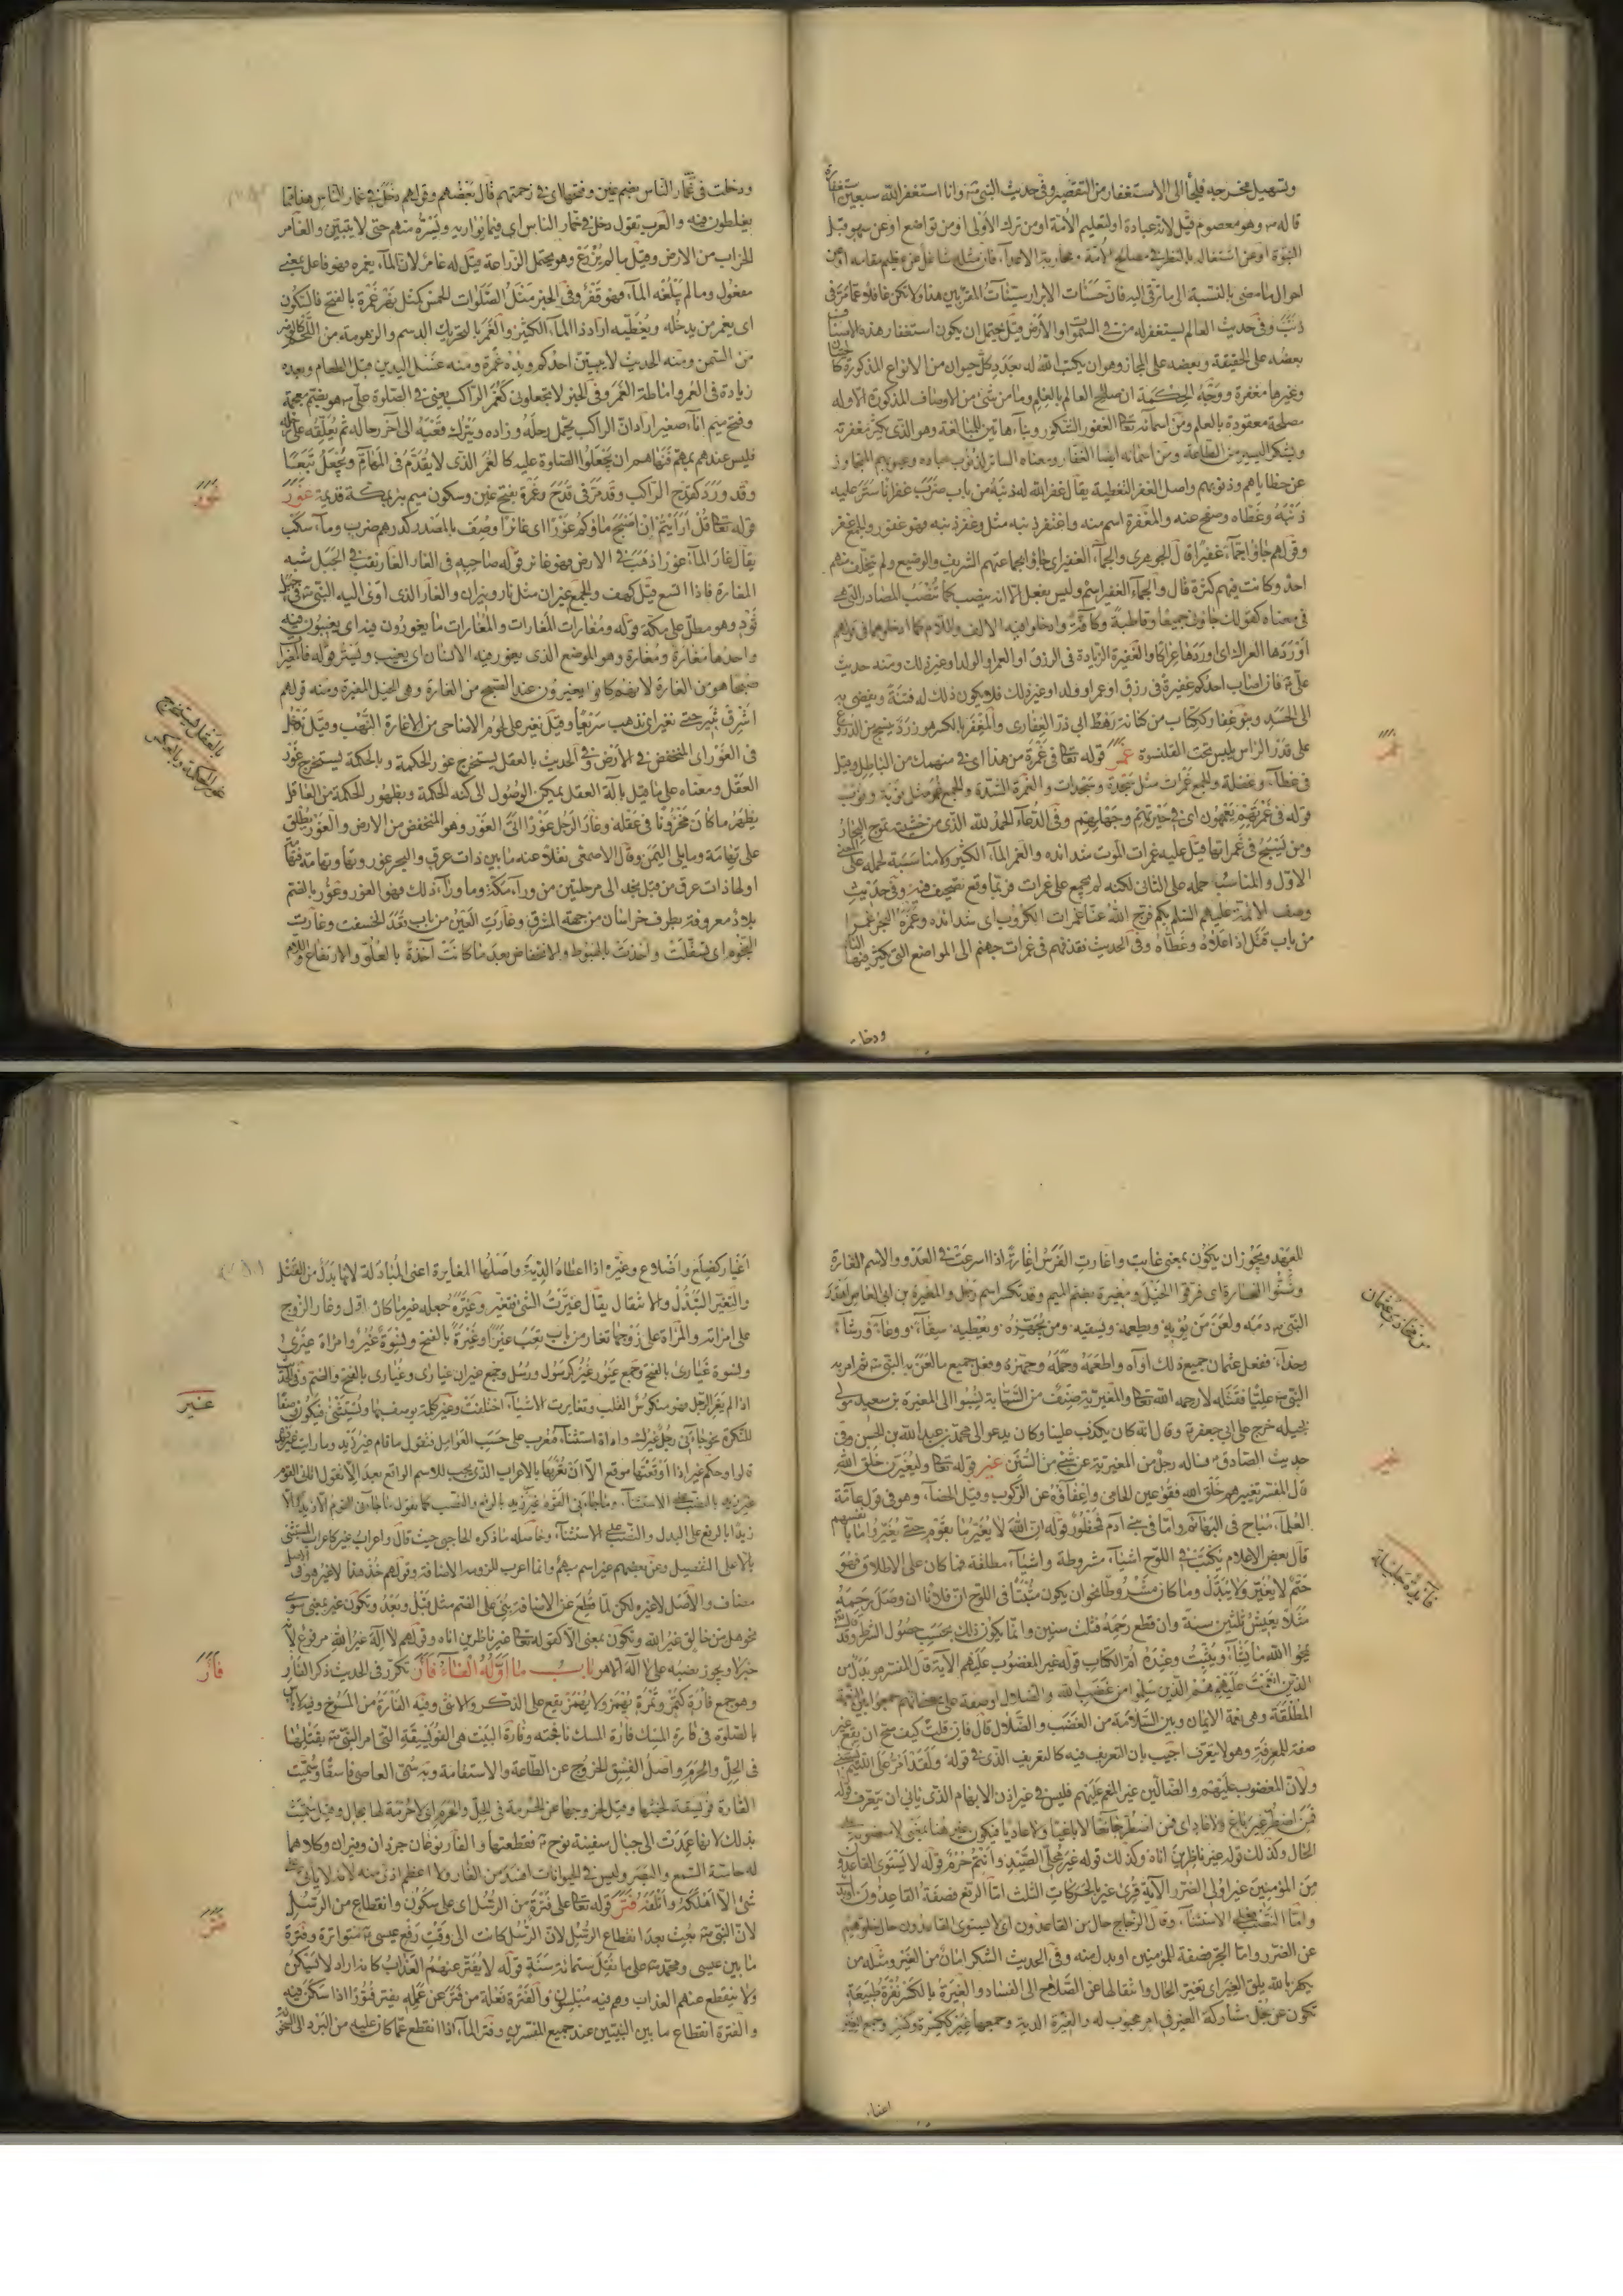 وتسهيل مخرجه فيلجأ الى الاستغفار من التقصير وفى حديث النبى ص وانا استغفر الله سبعين استغفارة
قاله ص وهو معصوم قيل لانه عبادة او لتعليم الامة او من ترك الاولى او من تواضع او عن سهو قبل
النبوة او عن اشتغاله بالنظر فى مصالح الامة ومحاربة الاعداء فان مثله شاغل عن عظيم مقامه او من
احوال ما مضى بالنسبة الى ما ترقى اليه فان حسنات الابرار سيئات المقربين هذا ولا تكن غافلا عما مر فى
ذنب وفى حديث العالم يستغفر له من فى السموات والارض قيل يحتمل ان يكون استغفار هذه الاصناف
بعضه على الحقيقة وبعضه على المجاز وهو ان يكتب الله له بعدد كل حيوان من الانواع المذكورة كالحيتان
وغيرها مغفرة ووجه الحكمة ان صلاح العالم بالعلم وما من شئ من الاوصاف المذكورة الا وله
مصلحة معقودة بالعلم ومن اسمائه تعالى الغفور الشكور وبناءهما من المبالغة وهو الذى يكثر مغفرته
ويشكر اليسير من الطاعة ومن اسمائه ايضا الغفار ومعناه الساتر لذنوب عباده وعيوبهم المتجاوز
عن خطاياهم وذنوبهم واصل الغفر التغطية يقال غفر الله له ذنبه من باب ضرب غفرانا ستر عليه
ذنبه وغطاه وصفح عنه والمغفرة اسم منه واغتفر ذنبه مثل وغفر ذنبه فهو غفور والجمع غفر
وقولهم جاؤا جماء غفيرا قال الجوهرى والجماء الغفير اى جاؤا بجماعتهم الشريف والوضيع ولم يتخلف منهم
احد وكانت فيهم كثرة قال والجماء الغفير اسم وليس بفعل الا انه ينصب كما تنصب المصادر التى هى
فى معناه كقولك جاؤنى جميعا وقاطبة وكافة وادخلوا فيه الالف واللام كما ادخلوهما فى قولهم
اوردها العراك اى اوردها عراكا والغفيرة الزيادة فى الرزق او العمر او الولد او غير ذلك ومنه حديث
على ع فان اصاب احدكم غفيرة فى رزق او عمر او ولد او غير ذلك فلا يكون ذلك له فتنة ويفضى به
الى الحسد وبنو غفار ككتاب من كنانة رهط ابى ذر الغفارى والمغفر بالكسر هو زرد ينسج من الدروع
على قدر الراس يلبس تحت القلنسوة غمر قوله تعالى فى غمرة من هذا اى فى منهمك من الباطل وقيل
فى غطاء وغفلة والجمع غمرات مثل سجدة وسجدات والغمرة الشدة والجمع غمر مثل نوبة ونوب
قوله فى غمرتهم يعمهون اى فى حيرتهم وجهالتهم وفى الدعاء الحمد لله الذى من خشيته تموج البحار
ومن يسبح فى غمراتها قيل عليه غمرات الموت شدائده والغمر الماء الكثير ولا مناسبة لحمله على المعنى
الاول والمناسب حمله على الثانى لكنه لم يجمع على غمرات فربما وقع تصحيف فيه وفى حديث
وصف الائمة عليهم السلم بكم فرج الله عنا غمرات الكروب اى شدائده وغمره البحر غمرا
من باب قتل اذا علاه وغطاه وفى الحديث نقذفهم فى غمرات جهنم الى المواضع التى يكثر فيها النار
غمر
ودخلت
ودخلت فى غمار الناس بضم غين وفتحها اى فى زحمتهم قال بعضهم وقولهم دخل فى غمار الناس هذا مما
يغلطون فيه والعرب تقول دخل فى خمار الناس اى فيما يواريه ويستره منهم حتى لا يتبين والغامر
الخراب من الارض وقيل ما لم يزرع وهو يحتمل الزراعة قيل له غامر لان الماء يغمره فهو فاعل بمعنى
مفعول وما لم يبلغه الماء فهو قفر وفى الخبر مثل الصلوات الخمس كمثل نهر غمرة بالفتح فالسكون
اى يغمر من يدخله ويغطيه اراد ذا الماء الكثير والغمر بالتحريك الدسم والزهومة من اللحم كالوضر
من السمن ومنه الحديث لا يبيتن احدكم ويده غمرة ومنه غسل اليدين قبل الطعام وبعده
زيادة فى العمر واماطة الغمر وفى الخبر لا تجعلونى كغمر الراكب يعنى فى الصلوة على ص هو بضم معجمة
وفتح ميم اناء صغير اراد ان الراكب يحمل رحله وزاده ويترك قعبه الى آخر رحاله ثم يعلقه على رحله
فليس عندهم بمهم فنهاهم ان يجعلوا الصلوة عليه كالغمر الذى لا يقدم فى المهام ويجعل تبعا
وقد ورد كقدح الراكب وقد مر فى قدح وغمرة بفتح غين وسكون ميم بئر بمكة قديمة غور
قوله تعالى قل ارأيتم ان اصبح ماؤكم غورا اى غائرا وصف بالمصدر كدرهم ضرب وماء سكب
يقال غار الماء غورا ذهب فى الارض فهو غائر قوله صاحبه فى الغار الغار نقب فى الجبل شبه
المغارة فاذا اتسع قيل كهف والجمع غيران مثل نار ونيران والغار الذى اوى اليه النبى ص فى جبل
ثور وهو مطل على مكة قوله ومغارات المغارات والمغارات ما يغورون فيه اى يغيبون فيه
واحدها مغارة ومغارة وهو الموضع الذى يغور فيه الانسان اى يغيب ويستتر قوله فالمغيرات
صبحا هو من الغارة لانهم كانوا يغيرون عند الصبح من الغارة وهى الخيل المغيرة ومنه قولهم
اشرق ثبير حتى نغير اى نذهب سريعا وقيل نغير على لحوم الاضاحى من الاغارة النهب وقيل ندخل
فى الغور اى المنخفض فى الارض وفى الحديث بالعقل يستخرج غور الحكمة وبالحكمة يستخرج غور
العقل ومعناه على ما قيل بآلة العقل يمكن الوصول الى كنه الحكمة وبظهور الحكمة من العاقل
يظهر ما كان مخزونا فى عقله وغار الرجل غورا اتى الغور وهو المنخفض من الارض والغور يطلق
على تهامة وما يلى اليمن وقال الاصمعى نقلا عنه ما بين ذات عرق والبحر غور وتهامة وتهامة
اولها ذات عرق من قبل نجد الى مرحلتين من وراء مكة وما وراء ذلك فهو الغور وغور بالضم
بلاد معروفة بطرف خراسان من جهة المشرق وغارت العين من باب قعد انخسفت وغارت
النجوم اى تسفلت واخذت بالهبوط والانخفاض بعد ما كانت آخذة بالعلو والارتفاع واللام
غور
بالعقل يستخرج
غور الحكمة وبالعكس
للعهد ويجوز ان يكون بمعنى غابت واغارت الفرس اغارة اذا اسرعت فى العدو والاسم الغارة
وشنوا الغارة اى فرقوا الخيل ومغيرة بضم الميم وقد تكسر اسم رجل والمغيرة بن ابى العاص اهدر
النبى ص دمه ولعن من يؤويه ويطعمه ويسقيه ومن يجهزه ويعطيه سقاء ووعاء ورشاء
وحذاء ففعل عثمان جميع ذلك آواه واطعمه وحمله وجهزه وفعل جميع ما لعن به النبى ص ثم امر به
النبى ص عليا فقتله لا رحمه الله تعالى والمغيرية صنف من السبابة نسبوا الى المغيرة بن سعيد مولى
بجيلة خرج على ابى جعفر ع وقال انه كان يكذب علينا وكان يدعو الى محمد بن عبد الله بن الحسن وفى
حديث الصادق ع ساله رجل من المغيرية عن شئ من السنن غير قوله تعالى وليغيرن خلق الله
قال المفسر تغييرهم خلق الله فقؤ عين الحامى واعفاؤه عن الركوب وقيل الخصاء وهو فى قول عامة
العلماء مباح فى البهائم واما فى بنى آدم فمحظور قوله ان الله لا يغير ما بقوم حتى يغيروا ما بانفسهم
قال بعض الاعلام نكتب فى اللوح اشياء مشروطة واشياء مطلقة فما كان على الاطلاق فهو
حتم لا يغير ولا يبدل وما كان مشروطا نحو ان يكون مثبتا فى اللوح ان فلانا ان وصل رحمه
مثلا يعيش ثلثين سنة وان قطع رحمه ثلث سنين وانما يكون ذلك بحسب حصول الشرط وقد قال الله
يمحوا الله ما يشاء ويثبت وعنده ام الكتاب قوله غير المغضوب عليهم الآية قال المفسر هو بدل من
الذين انعمت عليهم هم الذين سلموا من غضب الله والضلال او صفة على معنى انهم جمعوا بين النعمة
المطلقة وهى نعمة الايمان وبين السلامة من الغضب والضلال قال فان قلت كيف صح ان يقع غير
صفة للمعرفة وهو لا يتعرف اجيب بان التعريف فيه كالتعريف الذى فى قوله ولقد امر على اللئيم يسبنى
ولان المغضوب عليهم والضالين غير المنعم عليهم فليس فى غير اذن الابهام الذى يابى ان يتعرف قوله
فمن اضطر غير باغ ولا عاد اى فمن اضطر جائعا لا باغيا ولا عاديا فيكون غير هنا بمعنى لا منصوبة على
الحال وكذلك قوله غير ناظرين اناه وكذلك قوله غير محلى الصيد وانتم حرم قوله لا يستوى القاعدون
من المؤمنين غير اولى الضرر الآية قرئ غير بالحركات الثلث اما الرفع فصفة القاعدون
واما النصب فعلى الاستثناء وقال الزجاج حال من القاعدون اى لا يستوى القاعدون حال خلوهم
عن الضرر واما الجر فصفة للمؤمنين او بدل منه وفى الحديث الشكر امان من الغير ومثله من
يكفر بالله يلق الغير اى تغير الحال وانتقالها عن الصلاح الى الفساد والغيرة بالكسر نفرة طبيعية
تكون عن بخل مشاركة الغير فى امر محبوب له والغيرة الدية وجمعها غير ككسرة وكسر وجمع الغير
من مخازى عثمان
غير
فائدة جليلة
اغيار
اغيار كضلع واضلاع وغيره اذا اعطاه الدية واصلها المغايرة اعنى المبادلة لانها بدل من القتل
والتغير التبدل والانتقال يقال غيرت الشئ فتغير وغيره جعله غير ما كان اول وغار الزوج
على امراته والمراة على زوجها تغار من باب تعب غيرا وغيرة بالفتح ونسوة غير وامراة غيرى
ونسوة غيارى بالفتح وجمع غيور غير كرسول ورسل وجمع غيران غيارى وغيارى بالفتح والضم وفى الحديث
اذا لم يغر الرجل فهو منكوس القلب وتغايرت الاشياء اختلفت وغير كلمة يوصف بها ويستثنى فيكون وصفا
للنكرة نحو جاءنى رجل غيرك واداة استثناء فتعرب على حسب العوامل فتقول ما قام غير زيد وما رايت غير زيد
قالوا وحكم غير اذا اوقعتها موقع الا ان تعربها بالاعراب الذى يجب للاسم الواقع بعد الا تقول اتانى القوم
غير زيد بالنصب على الاستثناء وما جاءنى القوم غير زيد بالرفع والنصب كما تقول ما جاءنى القوم الا زيد والا
زيدا بالرفع على البدل والنصب على الاستثناء وحاصله ما ذكره الحاجبى حيث قال واعراب غير كاعراب المستثنى
بالا على التفصيل وعن بعضهم غير اسم مبهم وانما اعرب للزومه الاضافة وقولهم خذ هذا لا غير هو فى الاصل
مضاف والاصل لا غيره لكن لما قطع عن الاضافة بنى على الضم مثل قبل وبعد وتكون غير بمعنى سوى
نحو هل من خالق غير الله وتكون بمعنى الا كقوله تعالى غير ناظرين اناه وقولهم لا اله غير الله مرفوع لانه
خبر لا ويجوز نصبه على لا اله الا هو باب ما اوله الفاء فأر تكرر فى الحديث ذكر الفار
وهو جمع فارة كتمر وتمرة يهمز ولا يهمز يقع على الذكر والانثى وفيه الفارة من المسوخ وفيه لا باس
بالصلوة فى فارة المسك فارة المسك نافجته وفارة البيت هى الفويسقة التى امر النبى ص بقتلها
فى الحل والحرم واصل الفسق الخروج عن الطاعة والاستقامة وبه سمى العاصى فاسقا وسميت
الفارة فويسقة لخبثها وقيل لخروجها عن الحرمة فى الحل والحرم اى لا حرمة لها بحال وقيل سميت
بذلك لانها عمدت الى حبال سفينة نوح ع فقطعتها والفار نوعان جرذان وفئران وكلاهما
له حاسة السمع والبصر وليس فى الحيوانات افسد من الفار ولا اعظم اذى منه لانه لا ياتى على
شئ الا اهلكه واتلفه فتر قوله تعالى على فترة من الرسل اى على سكون وانقطاع من الرسل
لان النبى ص بعث بعد انقطاع الرسل لان الرسل كانت الى وقت رفع عيسى ع متواترة وفترة
ما بين عيسى ومحمد ص على ما نقل ستمائة سنة قوله لا يفتر عنهم العذاب كانه اراد لا يسكن
ولا ينقطع عنهم العذاب وهم فيه مبلسون والفترة فعلة من فتر عن عمله يفتر فتورا اذا سكن فيه
والفترة انقطاع ما بين النبيين عند جميع المفسرين وفتر الماء اذا انقطع عما كان عليه من البرد الى السخونة
غير
فأر
فتر